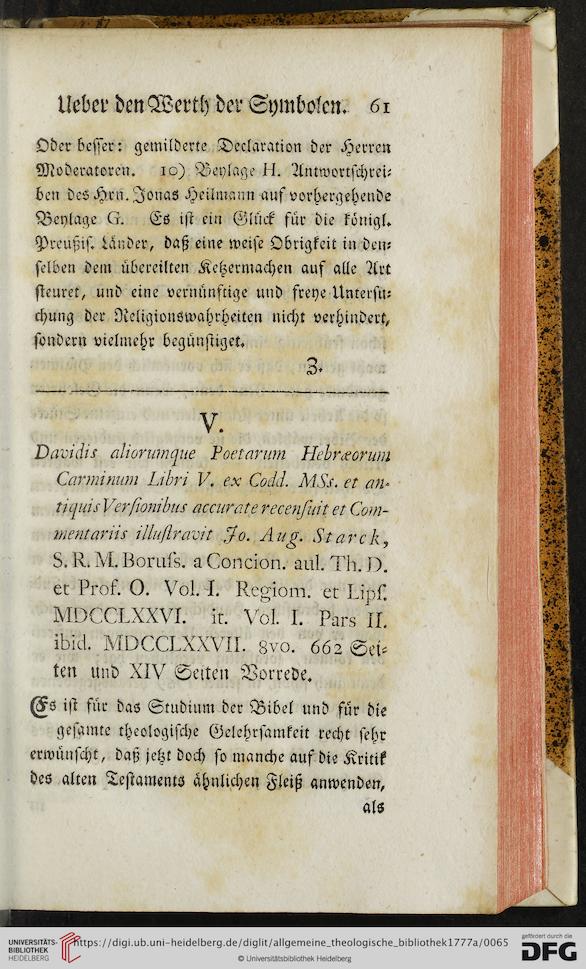 Ueber den Werth der Symbolen. 61
Oder besser: gemilderte Declaration der Herren
Moderatoren. 10) Beylage H. Antwortschrei-
ben des Hrn. Jonas Heilmann auf vorhergehende
Beylage G. Es ist ein Glück für die königl.
Preußis. Länder, daß eine weise Obrigkeit in den-
selben dem übereilten Ketzermachen auf alle Art
steuret, und eine vernünftige und freye Untersu-
chung der Religionswahrheiten nicht verhindert,
sondern vielmehr begünstiget.
Z.
V.
Davidis aliorumque Poetarum Hebræorum
Carminum Libri V. ex Codd. MSs. et an-
tiquis Versionibus accurate recensuit et Com-
mentariis illustravit Jo. Aug. Starck,
S. R. M. Boruss. a Concion. aul. Th. D.
et Prof. O. Vol. I. Regiom. et Lips.
MDCCLXXVI. it. Vol. I. Pars II.
ibid. MDCCLXXVII. 8vo. 662 Sei-
ten und XIV Seiten Vorrede.
Es ist für das Studium der Bibel und für die
gesamte theologische Gelehrsamkeit recht sehr
erwünscht, daß jetzt doch so manche auf die Kritik
des alten Testaments ähnlichen Fleiß anwenden,
als
UNIVERSITÄTS-
BIBLIOTHEK
HEIDELBERG
https://digi.ub.uni-heidelberg.de/diglit/allgemeine_theologische_bibliothek1777a/0065
© Universitätsbibliothek Heidelberg
gefördert durch die
DFG